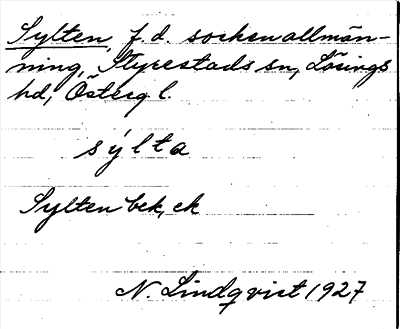 Sylten, f.d. sockenallmän-
ning, Styrestads sn, Lösings
hd, Österg l.
sýlta
Sylten bek, ek
N. Lindqvist 1927